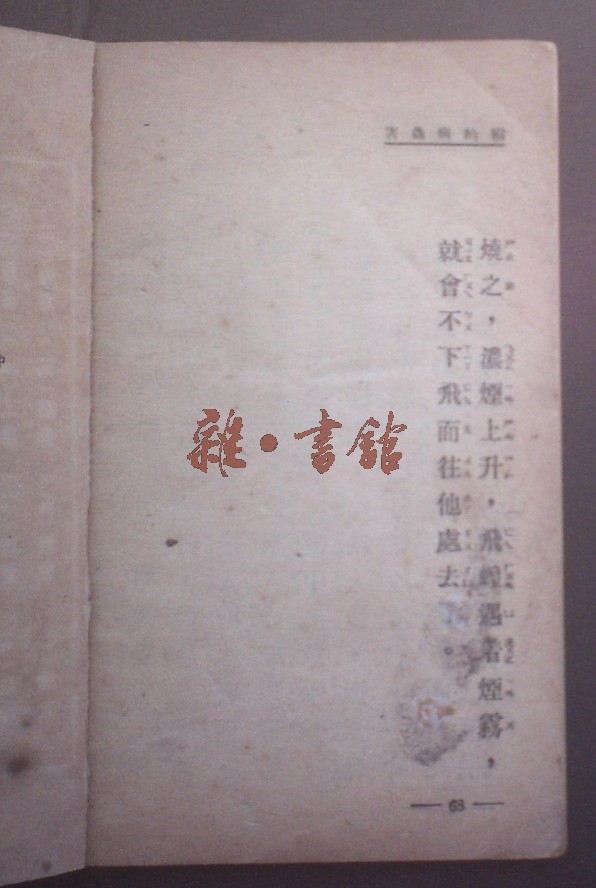 害蟲與
燒之，濃煙上升，飛蝗遇着煙霧，
就會不下飛而往他處去了。
雜·書館
— 68 —